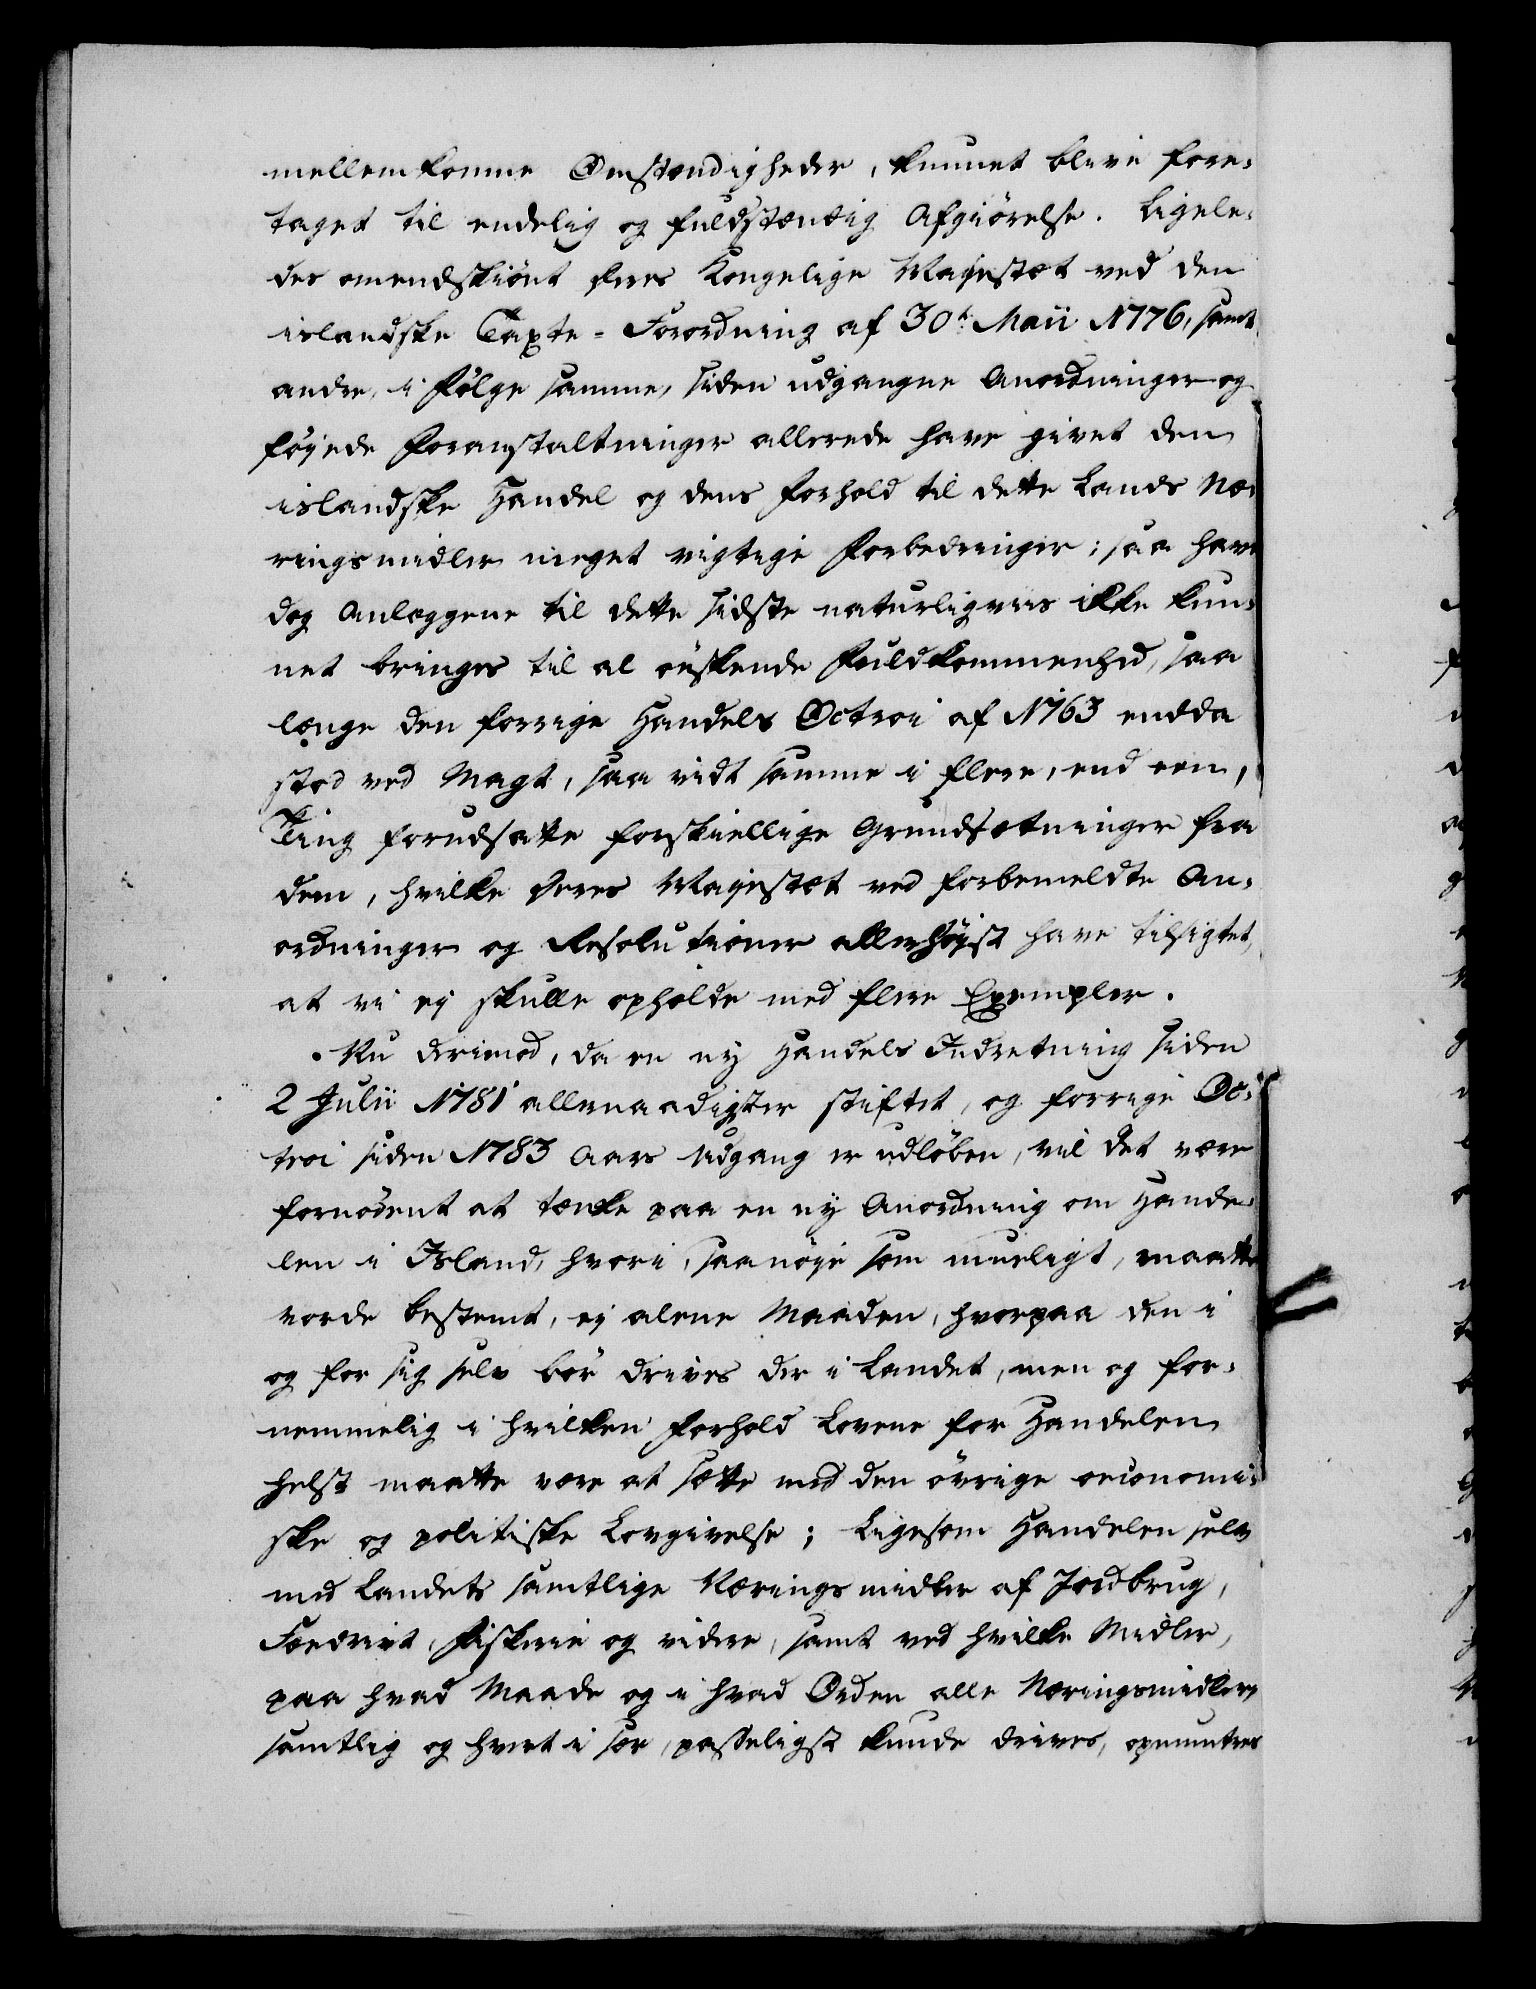 mellemkomne Omstændigheder, kunnet blive fore-
taget til endelig og fuldstændig Afgiörelse. Ligele-
des omendskiönt Deres Kongelige Majestæt ved den
islandske Taxte-Forordning af 30te Maii 1776, samt
andre, i Fölge samme, siden udgangne Anordninger og
föyede Foranstaltninger allerede have givet den
islandske Handel og dens Forhold til dette Lands Næ-
ringsmidler meget vigtige Forbedringer; saa have
dog Anlæggene til dette sidste naturligviis ikke kun-
net bringes til al önskende Fuldkommenhed, saa
længe den forrige Handels Octroi af 1763 endda
stod ved Magt, saa vidt samme i flere, end een,
Ting forudsatte forskiellige Grundsætninger fra
dem, hvilke Deres Majestæt ved forbemeldte An-
ordninger og Resolutioner allerhöyst have tilsigtet,
at vi ej skulle opholde med flere Exempler.
Nu derimod, da en ny Handels Indretning siden
2 Julii 1781 allernaadigster stiftet, og forrige Oc-
troi siden 1783 Aars Udgang er udlöben, vil det være
fornödent at tænke paa en ny Anordning om Hande-
len i Island, hvori, saa nöye som mueligt, maatte
vorde bestemt, ej alene Maaden, hvorpaa den i
og for sig selv bör drives der i Landet, men og for-
nemmelig i hvilken Forhold Lovene for Handelen
helst maatte være at sætte med den övrige oeconomi-
ske og politiske Lovgivelse; Ligesom Handelen selv
med Landets samtlige Nærings midler af Jordbrug,
Foedrivt, Fiskerie og videre, samt ved hvilke Midler,
paa hvad Maade og i hvad Orden alle Næringsmidlerne
samtlig og hvert i sær, passeligst kunde drives, opmuntres